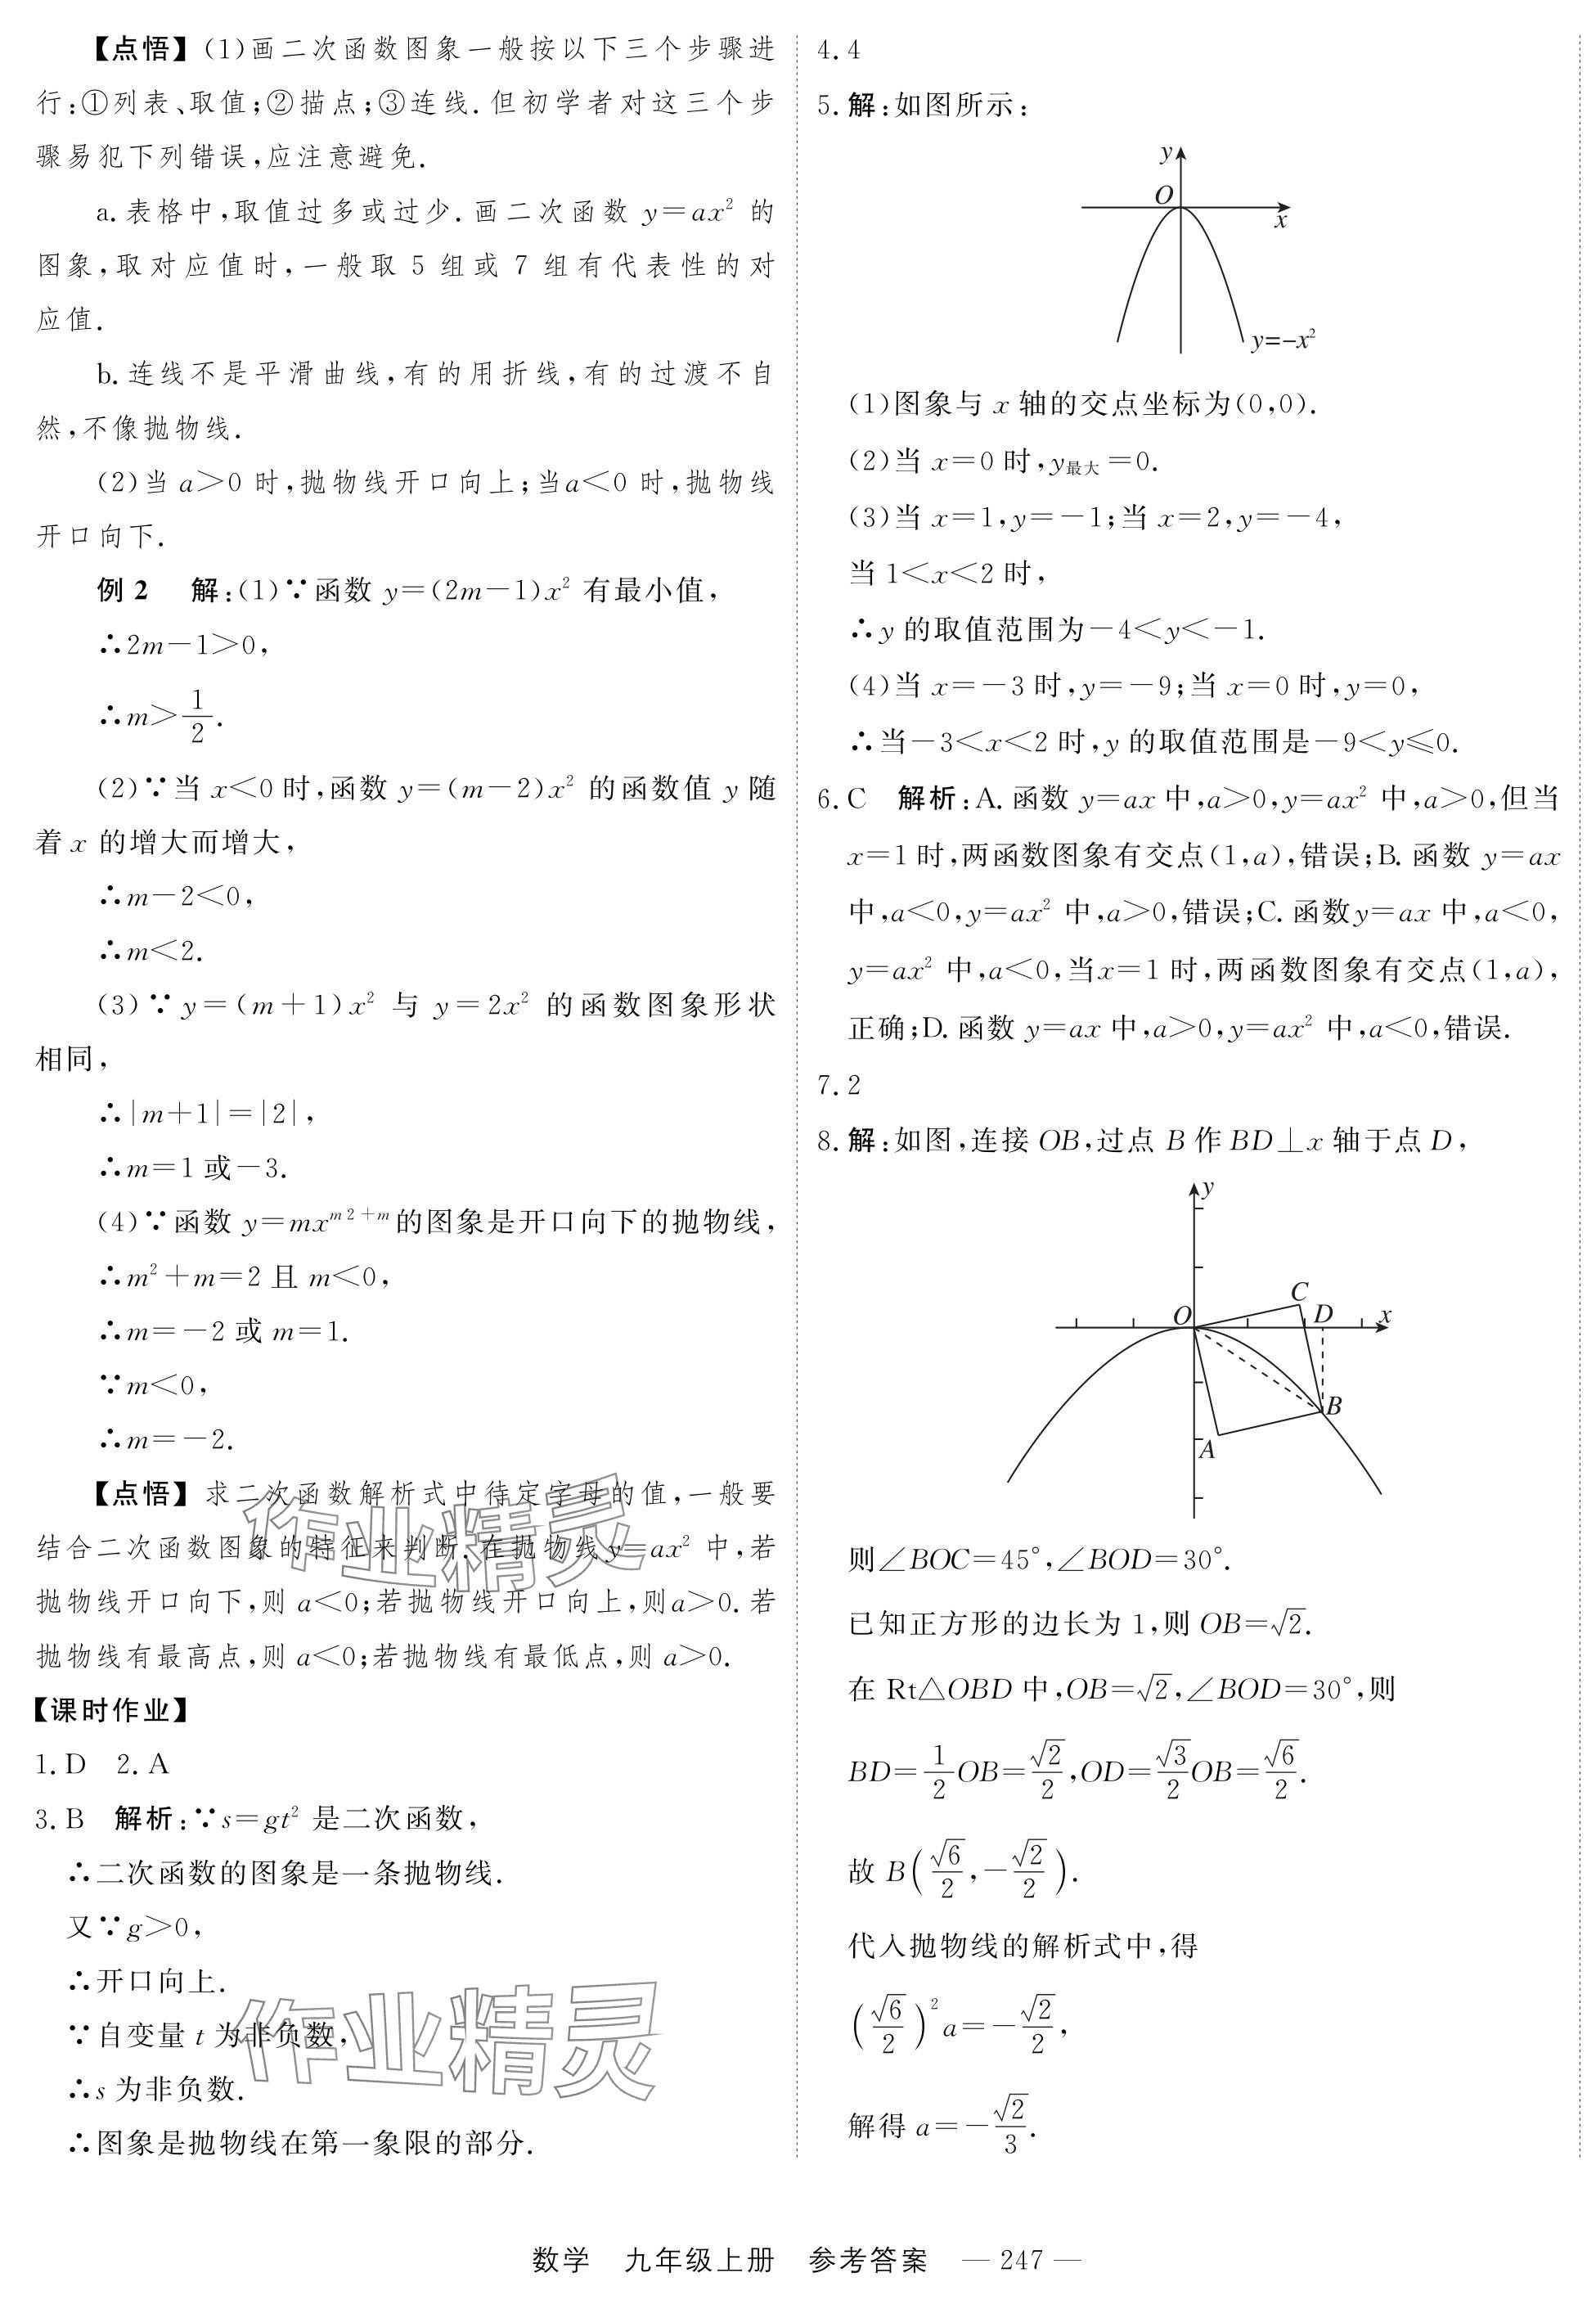 【点悟】(1)画二次函数图象一般按以下三个步骤进
行:①列表、取值;②描点;③连线.但初学者对这三个步
骤易犯下列错误,应注意避免.
a.表格中,取值过多或过少.画二次函数 y=ax² 的
图象,取对应值时,一般取 5 组或 7 组有代表性的对
应值.
b.连线不是平滑曲线,有的用折线,有的过渡不自
然,不像抛物线.
(2)当 a>0 时,抛物线开口向上;当a<0 时,抛物线
开口向下.
例 2 解:(1)∵函数 y=(2m-1)x² 有最小值,
∴2m-1>0,
∴m>1/2.
(2)∵当 x<0 时,函数 y=(m-2)x² 的函数值 y 随
着 x 的增大而增大,
∴m-2<0,
∴m<2.
(3)∵y=(m+1)x² 与 y=2x² 的函数图象形状
相同,
∴|m+1|=|2|,
∴m=1 或-3.
(4)∵函数 y=mx^{m2+m}的图象是开口向下的抛物线,
∴m²+m=2 且 m<0,
∴m=-2 或 m=1.
∵m<0,
∴m=-2.
【点悟】求二次函数解析式中待定字母的值,一般要
结合二次函数图象的特征来判断.在抛物线 y=ax² 中,若
抛物线开口向下,则 a<0;若抛物线开口向上,则a>0.若
抛物线有最高点,则 a<0;若抛物线有最低点,则 a>0.
【课时作业】
1.D 2.A
3.B 解析:∵s=gt² 是二次函数,
∴二次函数的图象是一条抛物线.
又∵g>0,
∴开口向上.
∵自变量 t 为非负数,
∴s 为非负数.
∴图象是抛物线在第一象限的部分.
作业精灵
作业精灵
4.4
5.解:如图所示:
y
O
x
y=-x²
(1)图象与 x 轴的交点坐标为(0,0).
(2)当 x=0 时,y最大=0.
(3)当 x=1,y=-1;当 x=2,y=-4,
当 1<x<2 时,
∴y 的取值范围为-4<y<-1.
(4)当 x=-3 时,y=-9;当 x=0 时,y=0,
∴当-3<x<2 时,y 的取值范围是-9<y≤0.
6.C 解析:A.函数 y=ax 中,a>0,y=ax² 中,a>0,但当
x=1 时,两函数图象有交点(1,a),错误;B.函数 y=ax
中,a<0,y=ax² 中,a>0,错误;C.函数y=ax 中,a<0,
y=ax² 中,a<0,当x=1 时,两函数图象有交点(1,a),
正确;D.函数 y=ax 中,a>0,y=ax² 中,a<0,错误.
7.2
8.解:如图,连接 OB,过点 B 作 BD⊥x 轴于点 D,
y
C
O
D
x
B
A
则∠BOC=45°,∠BOD=30°.
已知正方形的边长为 1,则 OB=√2.
在 Rt△OBD 中,OB=√2,∠BOD=30°,则
BD=1/2OB=√2/2,OD=√3/2OB=√6/2.
故 B(√6/2,-√2/2).
代入抛物线的解析式中,得
(√6/2)²a=-√2/2,
解得 a=-√2/3.
数学 九年级上册 参考答案 — 247 —